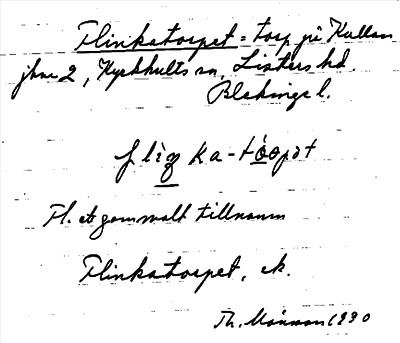 Flinkatorpet = torp på Kullan
jhm 2, Kyrkhults sn, Listers hd.
Blekinge l.
flìŋka-tòrpət
Fl. et gammalt tillnamn
Flinkatorpet, ek.
Th. Månsson 1930